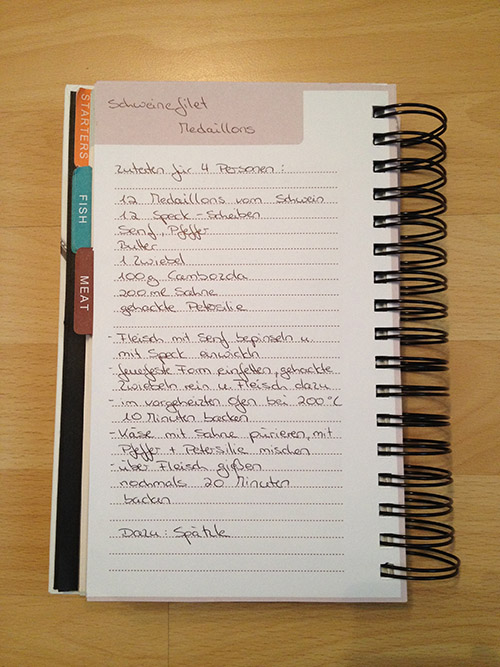 STARTERS
FISH
MEAT
Schweinefilet
Medaillons
Zutaten für 4 Personen:
12 Medaillons vom Schwein
12 Speck-Scheiben
Senf, Pfeffer
Butter
1 Zwiebel
100g Cambozda
200 ml Sahne
gehackte Petersilie
- Fleisch mit Senf bepinseln u.
mit Speck einwickeln
- feuerfeste Form einfetten, gehackte
Zwiebeln rein u. Fleisch dazu
- im vorgeheizten Ofen bei 200°C
10 Minuten backen
- Käse mit Sahne pürieren, mit
Pfeffer + Petersilie mischen
- über Fleisch gießen
nochmals 20 Minuten
backen
Dazu: Spätzle